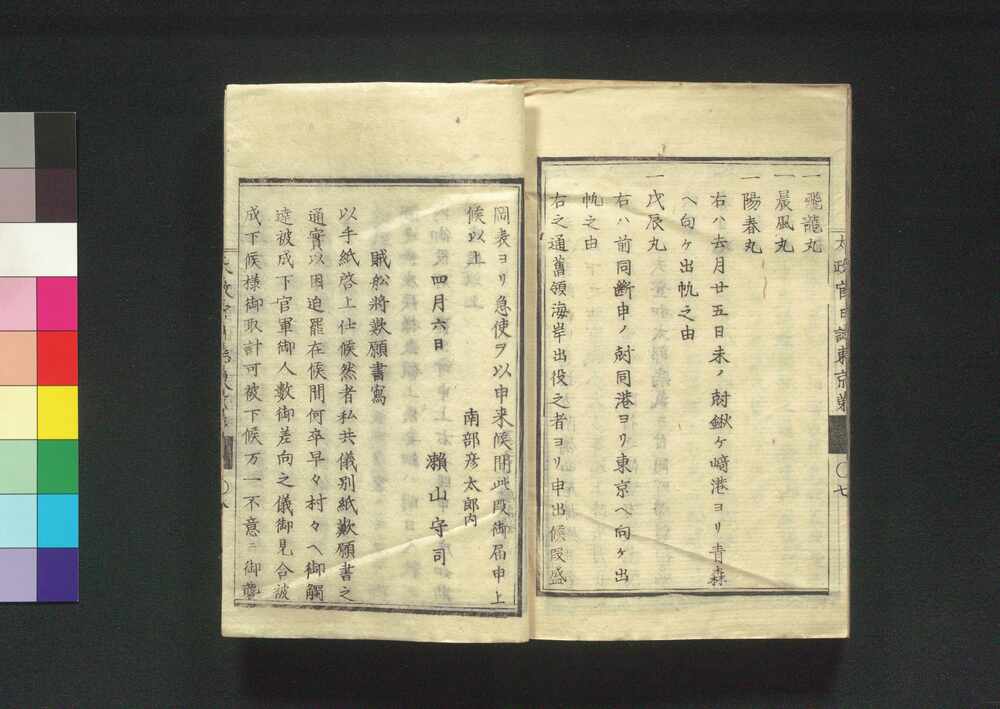 太政官日誌東京第
〇七
一飛龍丸
一晨風丸
一陽春丸
右ハ去月廿五日未ノ尅鍬ケ﨑港ヨリ青森
ヘ向ケ出帆之由
一戊辰丸
右ハ前同斷申ノ尅同港ヨリ東京ヘ向ケ出
帆之由
右之通舊領海岸出役之者ヨリ申出候段盛
岡表ヨリ急使ヲ以申来候間此段御届申上
候以上
南部彦太郎内
四月六日　瀬山守司
賊舩將歎願書寫
以手紙啓上仕候然者私共儀別紙歎願書之
通實以因迫罷在候間何卒早々村々ヘ御觸
達被成下官軍御人數御差向之儀御見合被
成下候樣御取計可被下候万一不意ニ御襲